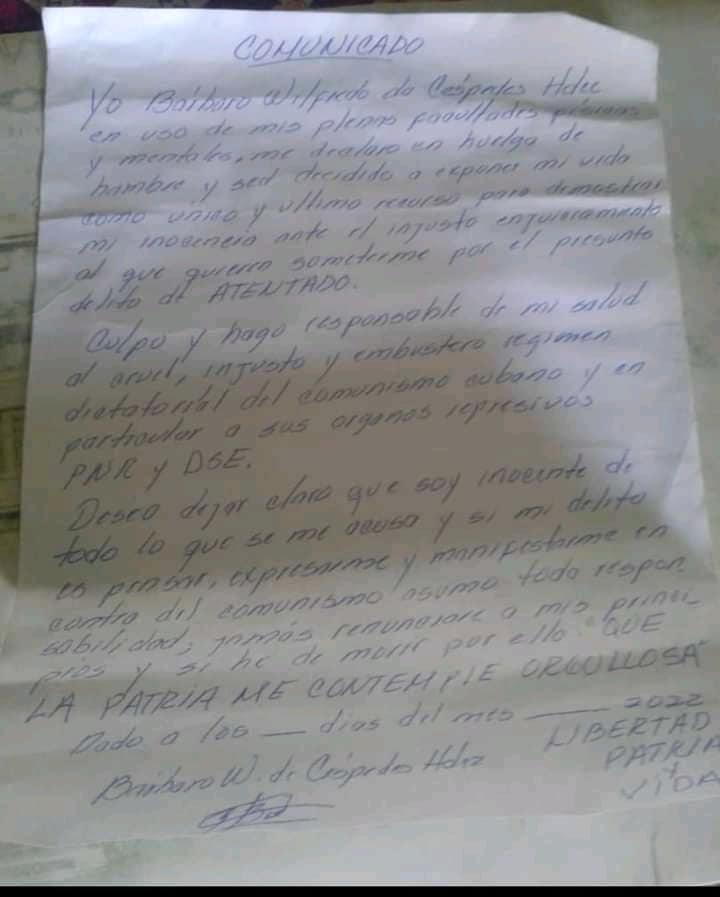 COMUNICADO
Yo Bárbaro Wilfredo de Céspedes Hdez
en uso de mis plenas facultades físicas
y mentales, me declaro en huelga de
hambre y sed decidido a exponer mi vida
como único y ultimo recurso para demostrar
mi inocencia ante el injusto enjuiciamiento
al que quieren someterme por el presunto
delito de ATENTADO.
Culpo y hago responsable de mi salud
al cruel, injusto y embustero regimen
dictatorial del comunismo cubano y en
particular a sus organos represivos
PNR y DSE.
Deseo dejar claro que soy inocente de
todo lo que se me acusa y si mi delito
es pensar, expresarme y manifestarme en
contra del comunismo asumo toda respon
sabilidad; jamás renunciare a mis princi-
pios y si he de morir por ello. QUE
LA PATRIA ME CONTEMPLE ORGULLOSA
Dado a los __ dias del mes ____ 2022
Bárbaro W. de Céspedes Hdez
LIBERTAD
PATRIA
Y
VIDA